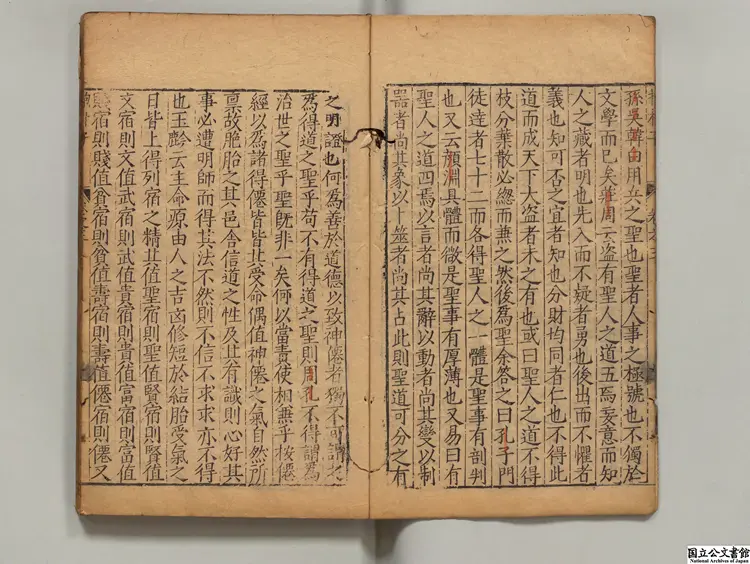 孫吳韓白用兵之聖也聖者人事之極號也不獨於
文學而已矣莊周云盜有聖人之道五焉妄意而知
人之藏者明也先入而不疑者勇也後出而不懼者
義也知可否之宜者知也分財均同者仁也不得此
道而成天下大盜者未之有也或曰聖人之道不得
枝分葉散必緫而兼之然後爲聖余答之曰孔子門
徒達者七十二而各得聖人之一體是聖事有剖判
也又云顏淵具體而微是聖事有厚薄也又易曰有
聖人之道四焉以言者尚其辭以動者尚其變以制
器者尚其象以卜筮者尚其占此則聖道可分之有
之明證也何爲善於道德以致神僊者獨不可謂之
爲得道之聖乎苟不有得道之聖則周孔不得謂爲
治世之聖乎聖旣非一矣何以當責使相兼乎按僊
經以爲諸得僊皆皆其受命偶值神僊之氣自然所
禀故胞胎之其邑含信道之性及其有識則心好其
事必遭明師而得其法不然則不信不求求亦不得
也玉齡云主命原由人之吉凶修短於結胎受氣之
日皆上得列宿之精其值聖宿則聖值賢宿則賢值
文宿則文值武宿則武值貴宿則貴值富宿則富值
賤宿則賤值貧宿則貧值壽宿則壽值僊宿則僊又
国立公文書館
National Archives of Japan